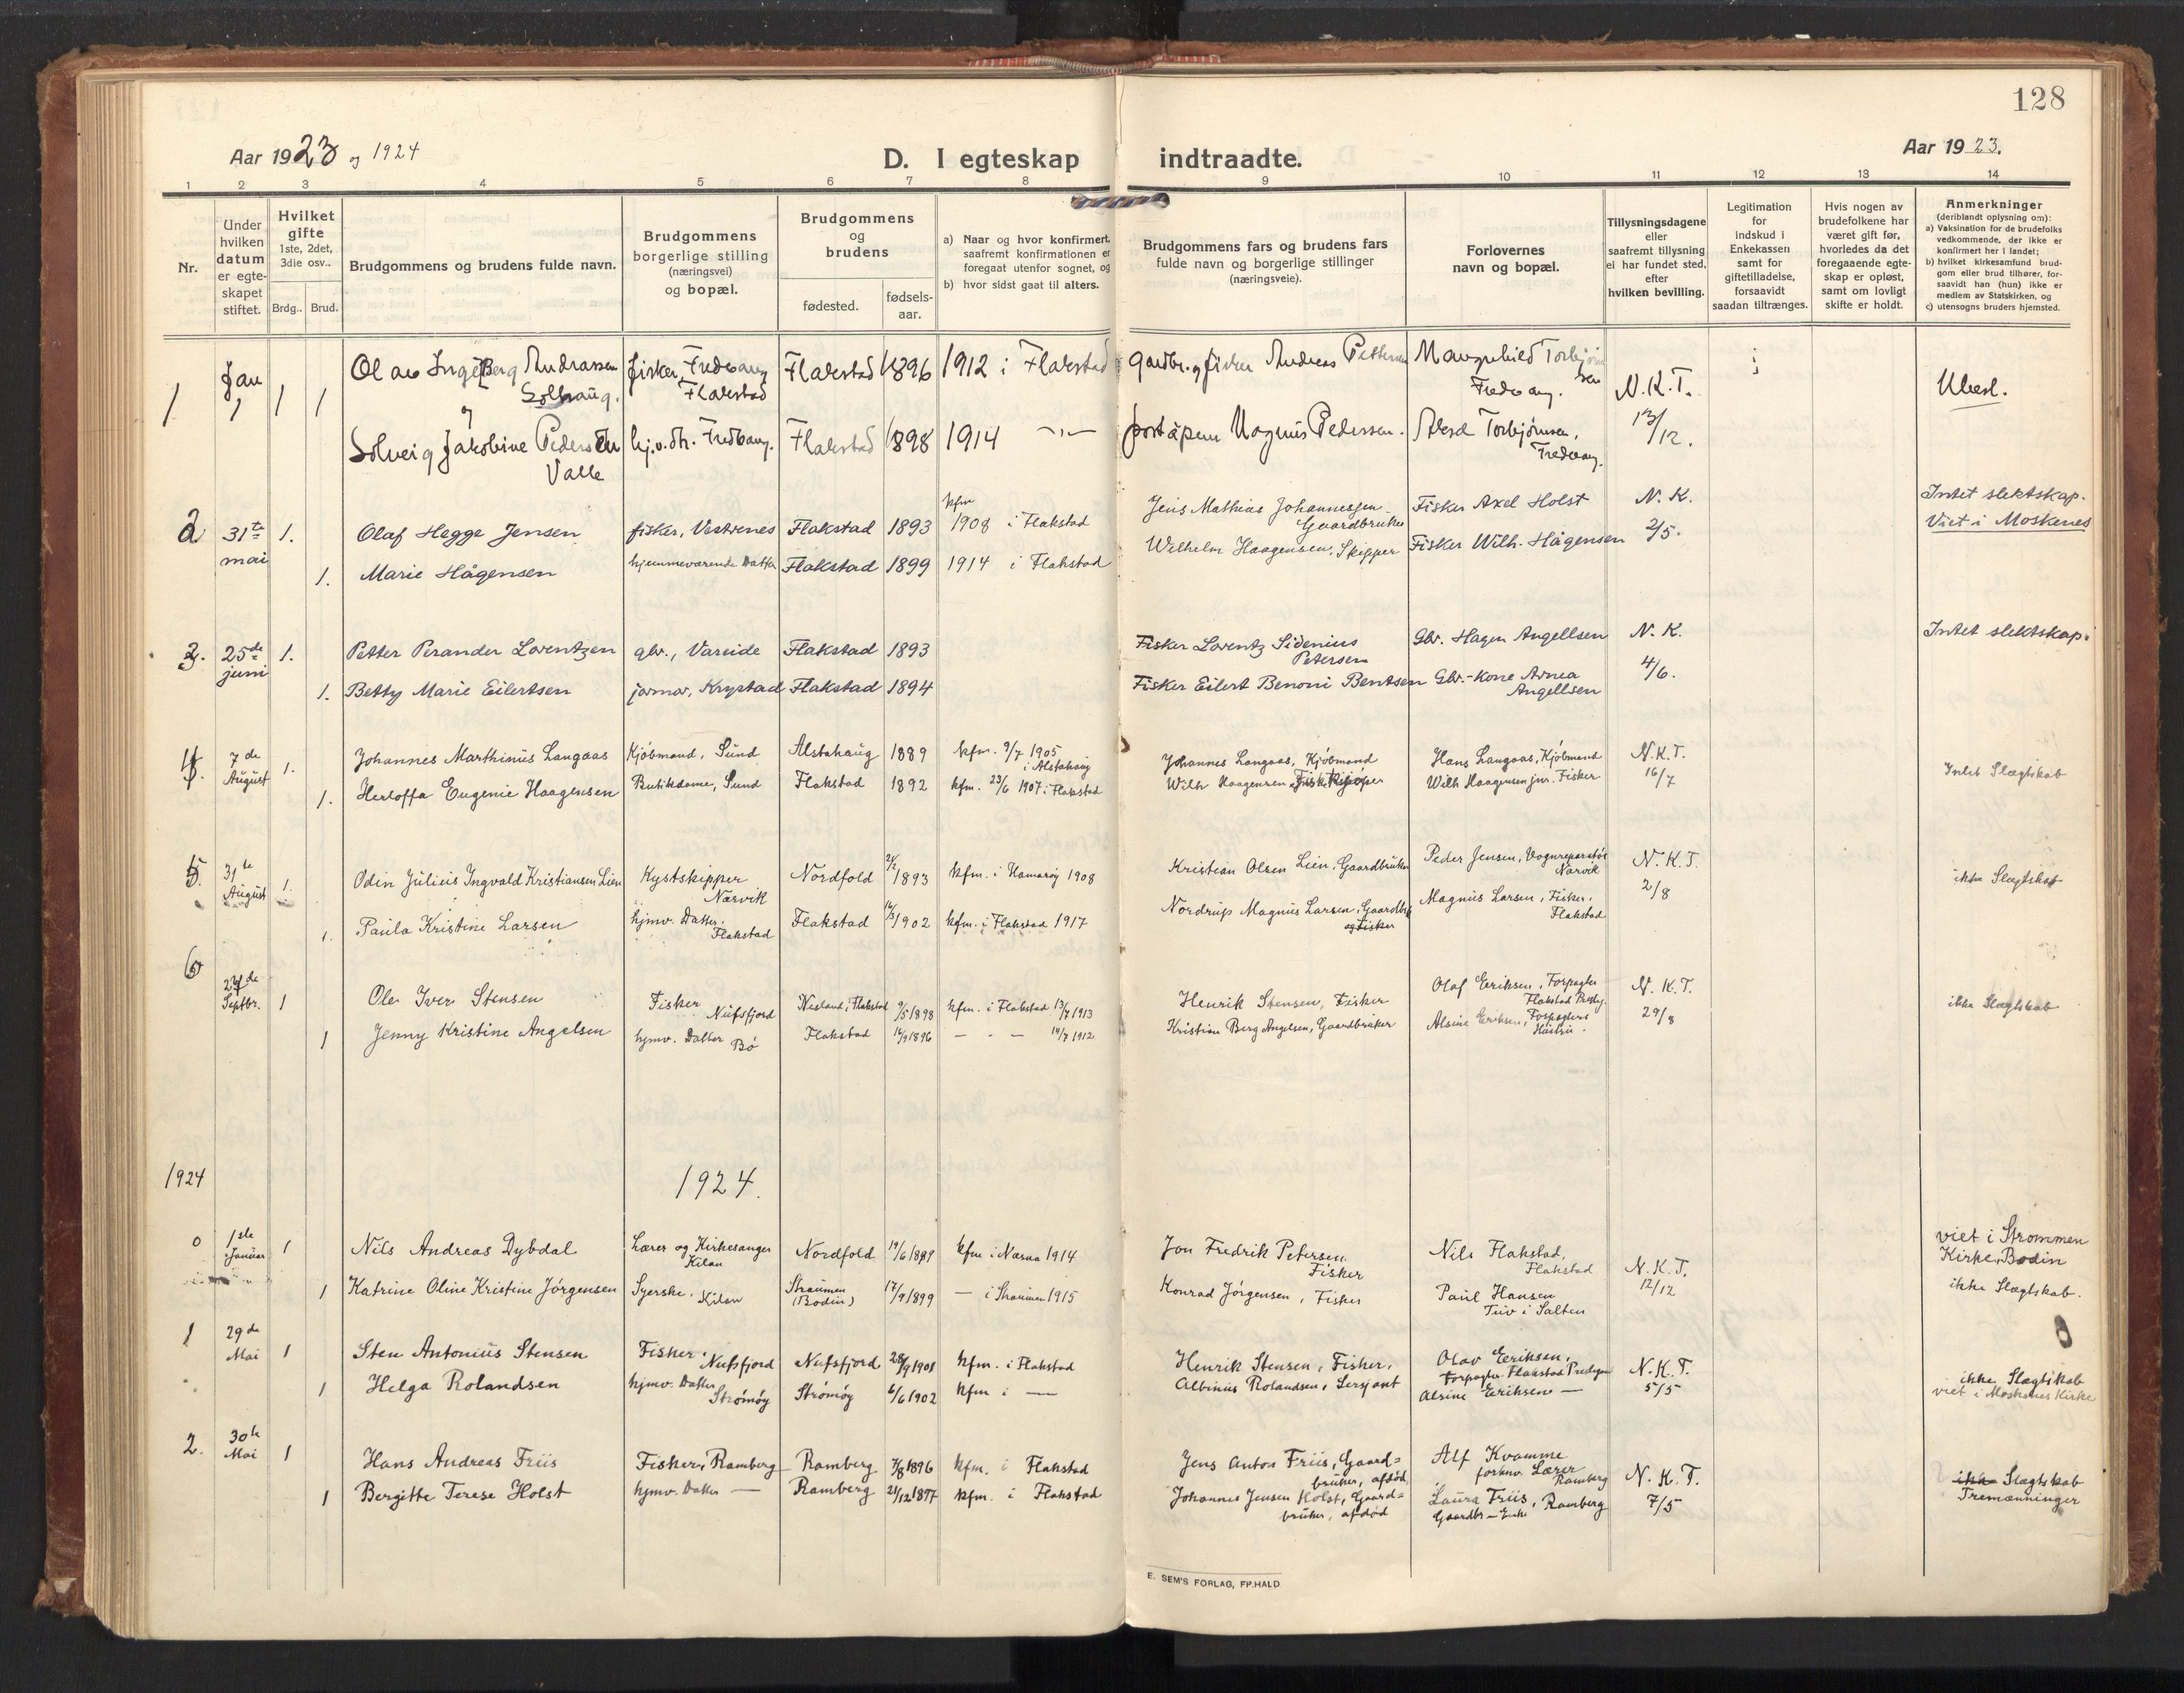 128
Aar 1923 og 1924
D. I egteskap indtraadte.
Aar 1923.
1 2 3 4 5 6 7 8 9 10 11 12 13 14
Nr.
Under
hvilken
datum
er egte-
skapet
stiftet.
Hvilket
gifte
1ste, 2det,
3die osv..
Brdg..
Brud.
Brudgommens og brudens fulde navn.
Brudgommens
borgerlige stilling
(næringsvei)
og bopæl.
Brudgommens
og
brudens
fødested.
fødsels-
aar.
a) Naar og hvor konfirmert,
saafremt konfirmationen er
foregaat utenfor sognet, og
b) hvor sidst gaat til alters.
Brudgommens fars og brudens fars
fulde navn og borgerlige stillinger
(næringsveie).
Forlovernes
navn og bopæl.
Tillysningsdagene
eller
saafremt tillysning
ei har fundet sted,
efter
hvilken bevilling.
Legitimation
for
indskud i
Enkekassen
samt for
giftetilladelse,
forsaavidt
saadan tiltrænges.
Hvis nogen av
brudefolkene har
været gift før,
hvorledes da det
foregaaende egte-
skap er opløst,
samt om lovligt
skifte er holdt.
Anmerkninger
(deriblandt oplysning om):
a) Vaksination for de brudefolks
vedkommende, der ikke er
konfirmert her i landet;
b) hvilket kirkesamfund brud-
gom eller brud tilhører, for-
saavidt han (hun) ikke er
medlem av Statskirken, og
c) utensogns bruders hjemsted.
1 Jan 1 1 1
Olav Ingeberg Andreassen
Solhaug.
fisker, Fredvang
Flakstad
Flakstad 1896 1912 i Flakstad
Gardbr. og fisker Andreas Pettersen
Mangnhild Torbjørnsen
Fredvang.
N.K.T.
13/12.
Ubesl.
og
Solveig Jakobine Pedersen
Valle
hj.v.dtr. Fredvang.
Flakstad 1898 1914 -"-
poståpner Magnus Pedersen.
Aksel Torbjørnsen,
Fredvang.
2 31te mai 1.
Olaf Hegge Jensen fisker, Vestrenes Flakstad 1893 kfm 1908 i Flakstad
Jens Mathias Johannessen
Gaardbruker
Fisker Axel Holst N.K.
2/5.
Intet slektskap.
Viet i Moskenes
1. Marie Hågensen hjemmeværende Datter Flakstad 1899 1914 i Flakstad
Wilhelm Haagensen, Skipper Fisker Wilh. Hågensen
3. 25de juni 1.
Petter Perander Lorentzen gbr., Vareide Flakstad 1893
Fisker Lorentz Sidenius
Petersen
Gbr. Hagen Angellsen N.K.
4/6.
Intet slektskap.
1. Betty Marie Eilertsen jormor, Krystad Flakstad 1894
Fisker Eilert Benoni Bentsen Gbr.-kone Arnea
Angellsen
4. 7de August 1.
Johannes Marthinus Langaas Kjöbmand, Sund Alstahaug 1889 kfm. 9/7 1905
i Alstahaug
Johannes Langaas, Kjöbmand Hans Langaas, Kjöbmand N.K.T.
16/7
Intet Slægtskab
1. Herloffa Eugenie Haagensen Butikdame, Sund Flakstad 1892 kfm. 23/6 1907 i Flakstad
Wilh Haagensen Wilh Haagensen jnr. Fisker
5. 31te August 1.
Odin Julius Ingvald Kristiansen Lien Kystskipper
Narvik
Nordfold 1893 kfm. i Hamarøy 1908
Kristian Olsen Lien, Gaardbruker Peder Jensen, Vognreparatör
Narvik
N.K.T.
2/8
ikke Slægtskab
1. Paula Kristine Larsen hjmv. Datter.
Flakstad
Flakstad 1902 kfm. i Flakstad 1917
Nordrup Magnus Larsen, Gaardbr.
og Fisker
Magnus Larsen, Fisker,
Flakstad
6 Septbr. 1
Ole Iver Stensen Fisker
Nufsfjord
Nesland, Flakstad 9/5 1898 kfm. i Flakstad 13/7 1913
Henrik Stensen, Fisker
Olaf Eriksen, Forpagter
Flakstad Prestg.
N.K.T.
29/8
ikke Slægtskab
1 Jenny Kristine Angelsen hjmv. Datter Bö Flakstad 16/9 1896 — - — 14/7 1912
Kristian Berg Angelsen, Gaardbruker Alsine Eriksen, Forpagters
Hustru.
1924
1924.
0 1ste Januar 1
Nils Andreas Dybdal Lærer og Kirkesanger
Kilan
Nordfold 19/6 1889 kfm i Næsna 1914
Jon Fredrik Petersen
Fisker
Nils Flakstad,
Flakstad
N.K.T.
12/12
viet i Strømmen
Kirke, Bodin
ikke Slægtskab.
1 Katrine Oline Kristine Jörgensen Syerske, Kilan Straumen
(Bodin)
17/9 1899 — i Skaumen 1915
Konrad Jörgensen, Fisker Paul Hansen
Tuv i Salten
1 29de Mai 1
Sten Antonius Stensen Fisker.
Nufsfjord
Nufsfjord 28/9 1901 kfm. i Flakstad
Henrik Stensen, Fisker,
Olav Eriksen,
Forpagter Flakstad Prestgn
N.K.T.
5/5
ikke Slægtskab
viet i Moskenes Kirke
1 Helga Rolandsen hjmv. Datter
Strömöy
Strömöy 6/6 1902 kfm i —
Albinus Rolandsen, Sersjant Alsine Eriksen —
2. 30te Mai 1
Hans Andreas Friis Fisker, Ramberg Ramberg 7/8 1896 kfm. i Flakstad
Jens Anton Friis, Gaard=
bruker, afdöd
Alf Kvamme
forhnv. Lærer
Ramberg
N.K.T.
7/5
ikke Slægtskab
Tremænninger
1 Bergitte Terese Holst hjmv. Datter — Ramberg 21/12 1877 kfm. i Flakstad
Johannes Jensen Holst, Gaard=
bruker, afdöd
Laura Friis, Ramberg
Gaardbr-Enke
E. SEM'S FORLAG, FR.HALD